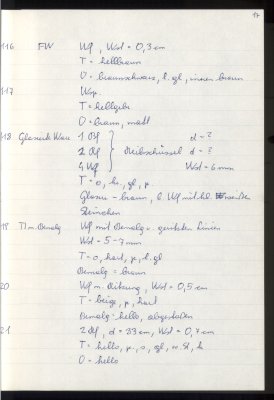 17
116 FW Wf, Wd = 0,3 cm
T = hellbraun
O = braunschwarz, l. gl, innen braun
117 Wsp.
T = hellgelb
O = braun, matt
118 Glasierte Ware 1 Bf d = ?
2 Rf Reibschüssel d = ?
4 Wf Wd = 6 mm
T = o, hr, gl, p.
Glasur = braun, b. Wf mit kl. weißen
Steinchen
19 TI m. Bemalg Wf mit Bemalg v. Linien
Wd = 5-7 mm
T = o, hart, p, l. gl
Bemalg = braun
20 Wf m. Ritzung, Wd = 0,5 cm
T = beige, p, hart
Bemalg: hello, abgefallen
21 2 Rf, d = 33 cm, Wd = 0,7 cm
T = hello, p, s, gl, w. St, h
O = hello